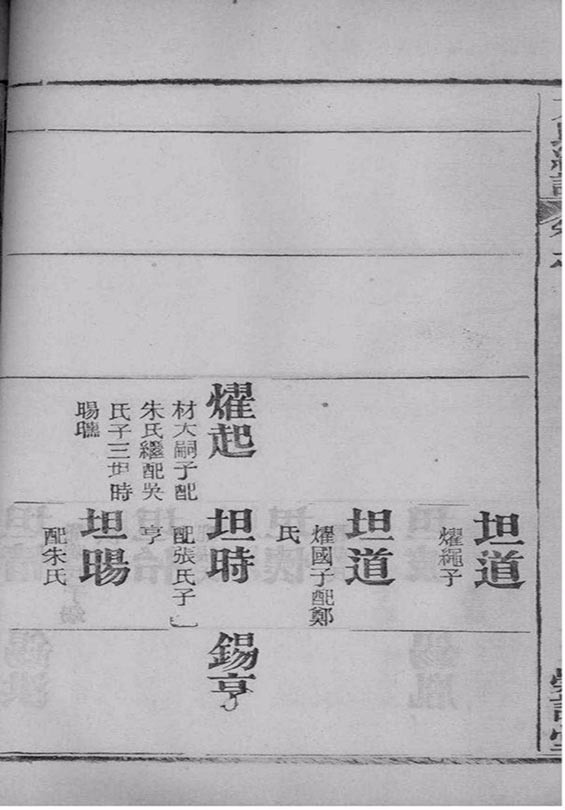 坦道
燿繩子
坦道
燿國子配鄭
氏
燿起
材大嗣子配
朱氏繼配吳
氏子三坦時
暘聽
坦時
配張氏子
亨
錫亨
坦暘
配朱氏